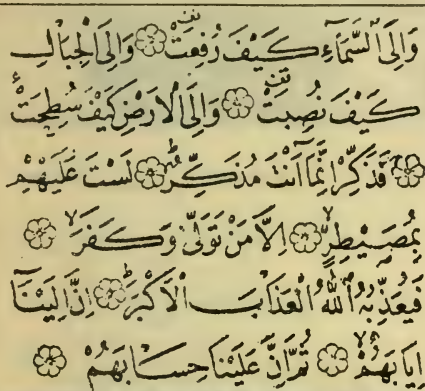 وَاِلَى السَّمَآءِ كَيْفَ رُفِعَتْ ۝ وَاِلَى الْجِبَالِ
كَيْفَ نُصِبَتْ ۝ وَاِلَى الْاَرْضِ كَيْفَ سُطِحَتْ
۝ فَذَكِّرْ اِنَّمَآ اَنْتَ مُذَكِّرٌ ۝ لَسْتَ عَلَيْهِمْ
بِمُصَيْطِرٍ ۝ اِلَّا مَنْ تَوَلّٰى وَكَفَرَ ۝
فَيُعَذِّبُهُ اللّٰهُ الْعَذَابَ الْاَكْبَرَ ۝ اِنَّ اِلَيْنَآ
اِيَابَهُمْ ۝ ثُمَّ اِنَّ عَلَيْنَا حِسَابَهُمْ ۝